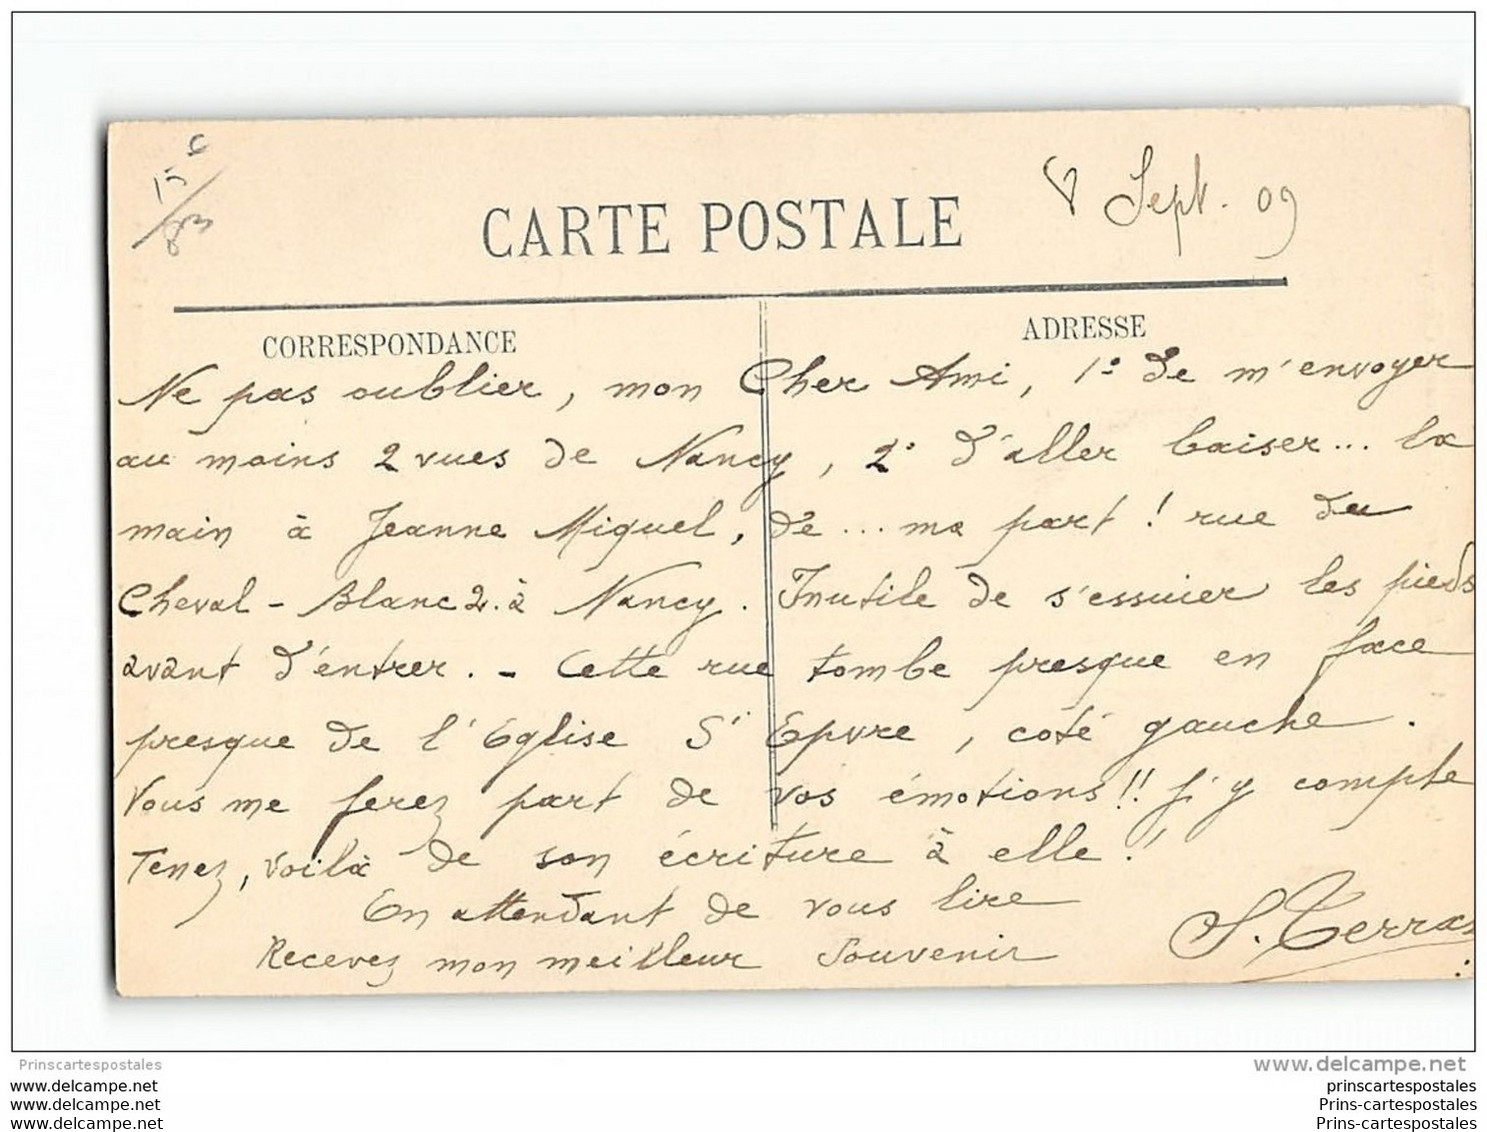 15 €
83
8 Sept. 09
CARTE POSTALE
CORRESPONDANCE
ADRESSE
Ne pas oublier, mon Cher Ami, 1° de m'envoyer
au moins 2 vues de Nancy, 2° d'aller baiser... la
main à Jeanne Miquel, de... ma part ! rue du
Cheval-Blanc 2. à Nancy. Inutile de s'essuier les pieds
avant d'entrer. - Cette rue tombe presque en face
presque de l'Eglise St Epvre, coté gauche.
Vous me ferez part de vos émotions !! j'y compte
Tenez, voilà de son écriture à elle !
En attendant de vous lire
Recevez mon meilleur souvenir
S. Terras
Prinscartespostales
www.delcampe.net
www.delcampe.net
www.delcampe.net
www.delcampe.net
prinscartespostales
Prins-cartespostales
Prins-cartespostales